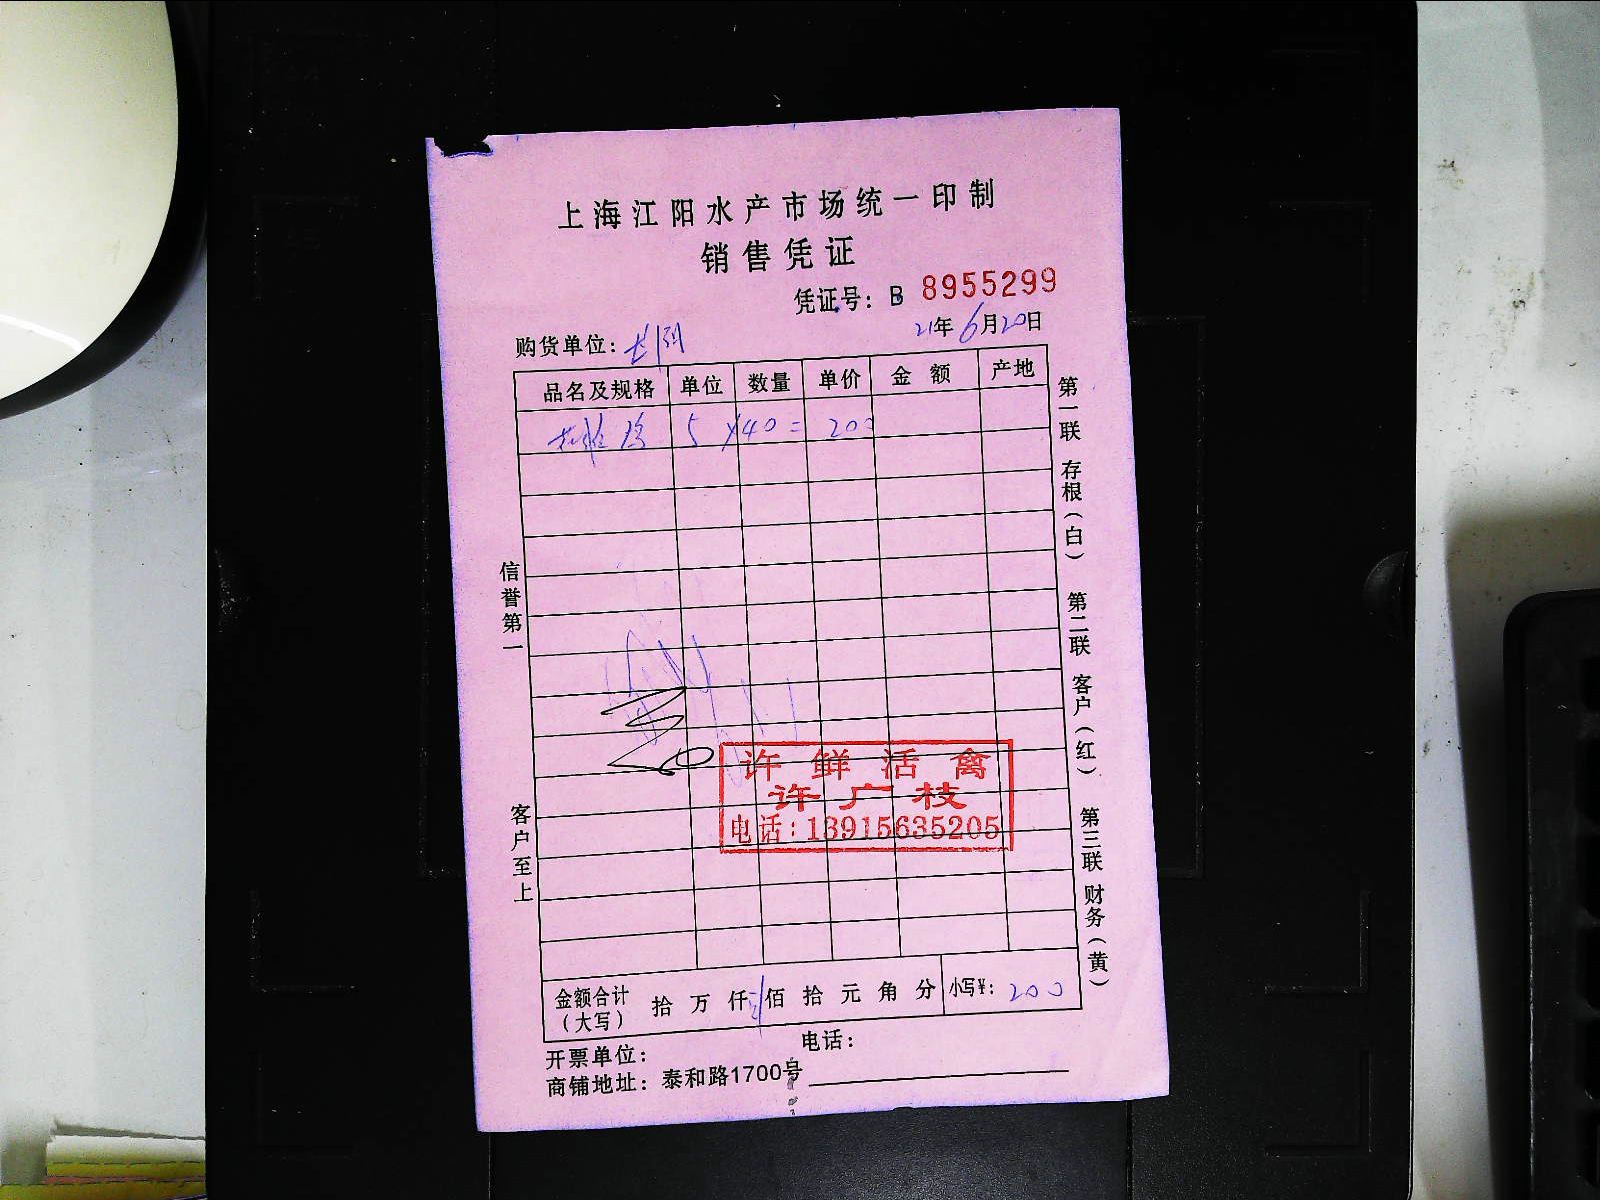 上海江阳水产市场统一印制
销售凭证
凭证号：B 8955299
21年6月20日
购货单位：
品名及规格 单位 数量 单价 金额 产地
5 ×40= 200
信誉第一
客户至上
第一联 存根（白） 第二联 客户（红） 第三联 财务（黄）
许鲜活禽
许广枝
电话：13915635205
金额合计（大写） 拾万仟佰拾元角分 小写¥：200
开票单位： 电话：
商铺地址：泰和路1700号